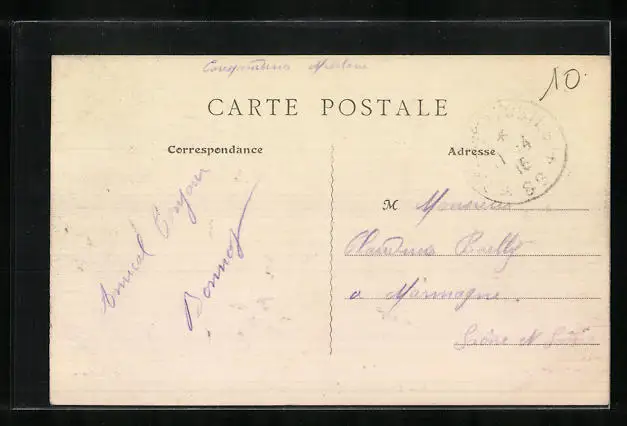 Correspondance Militaire
10
CARTE POSTALE
Correspondance
Adresse
POSTES
* 1 - 4 16 *
M Monsieur
Claudius Bailly
a Marmagne
Saône et Loire
Amical Bonjour
Bonnot